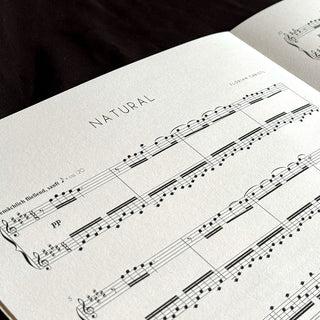 NATURAL
FLORIAN CHRISTL
gemächlich fließend, sanft ♩ = 120
pp
5